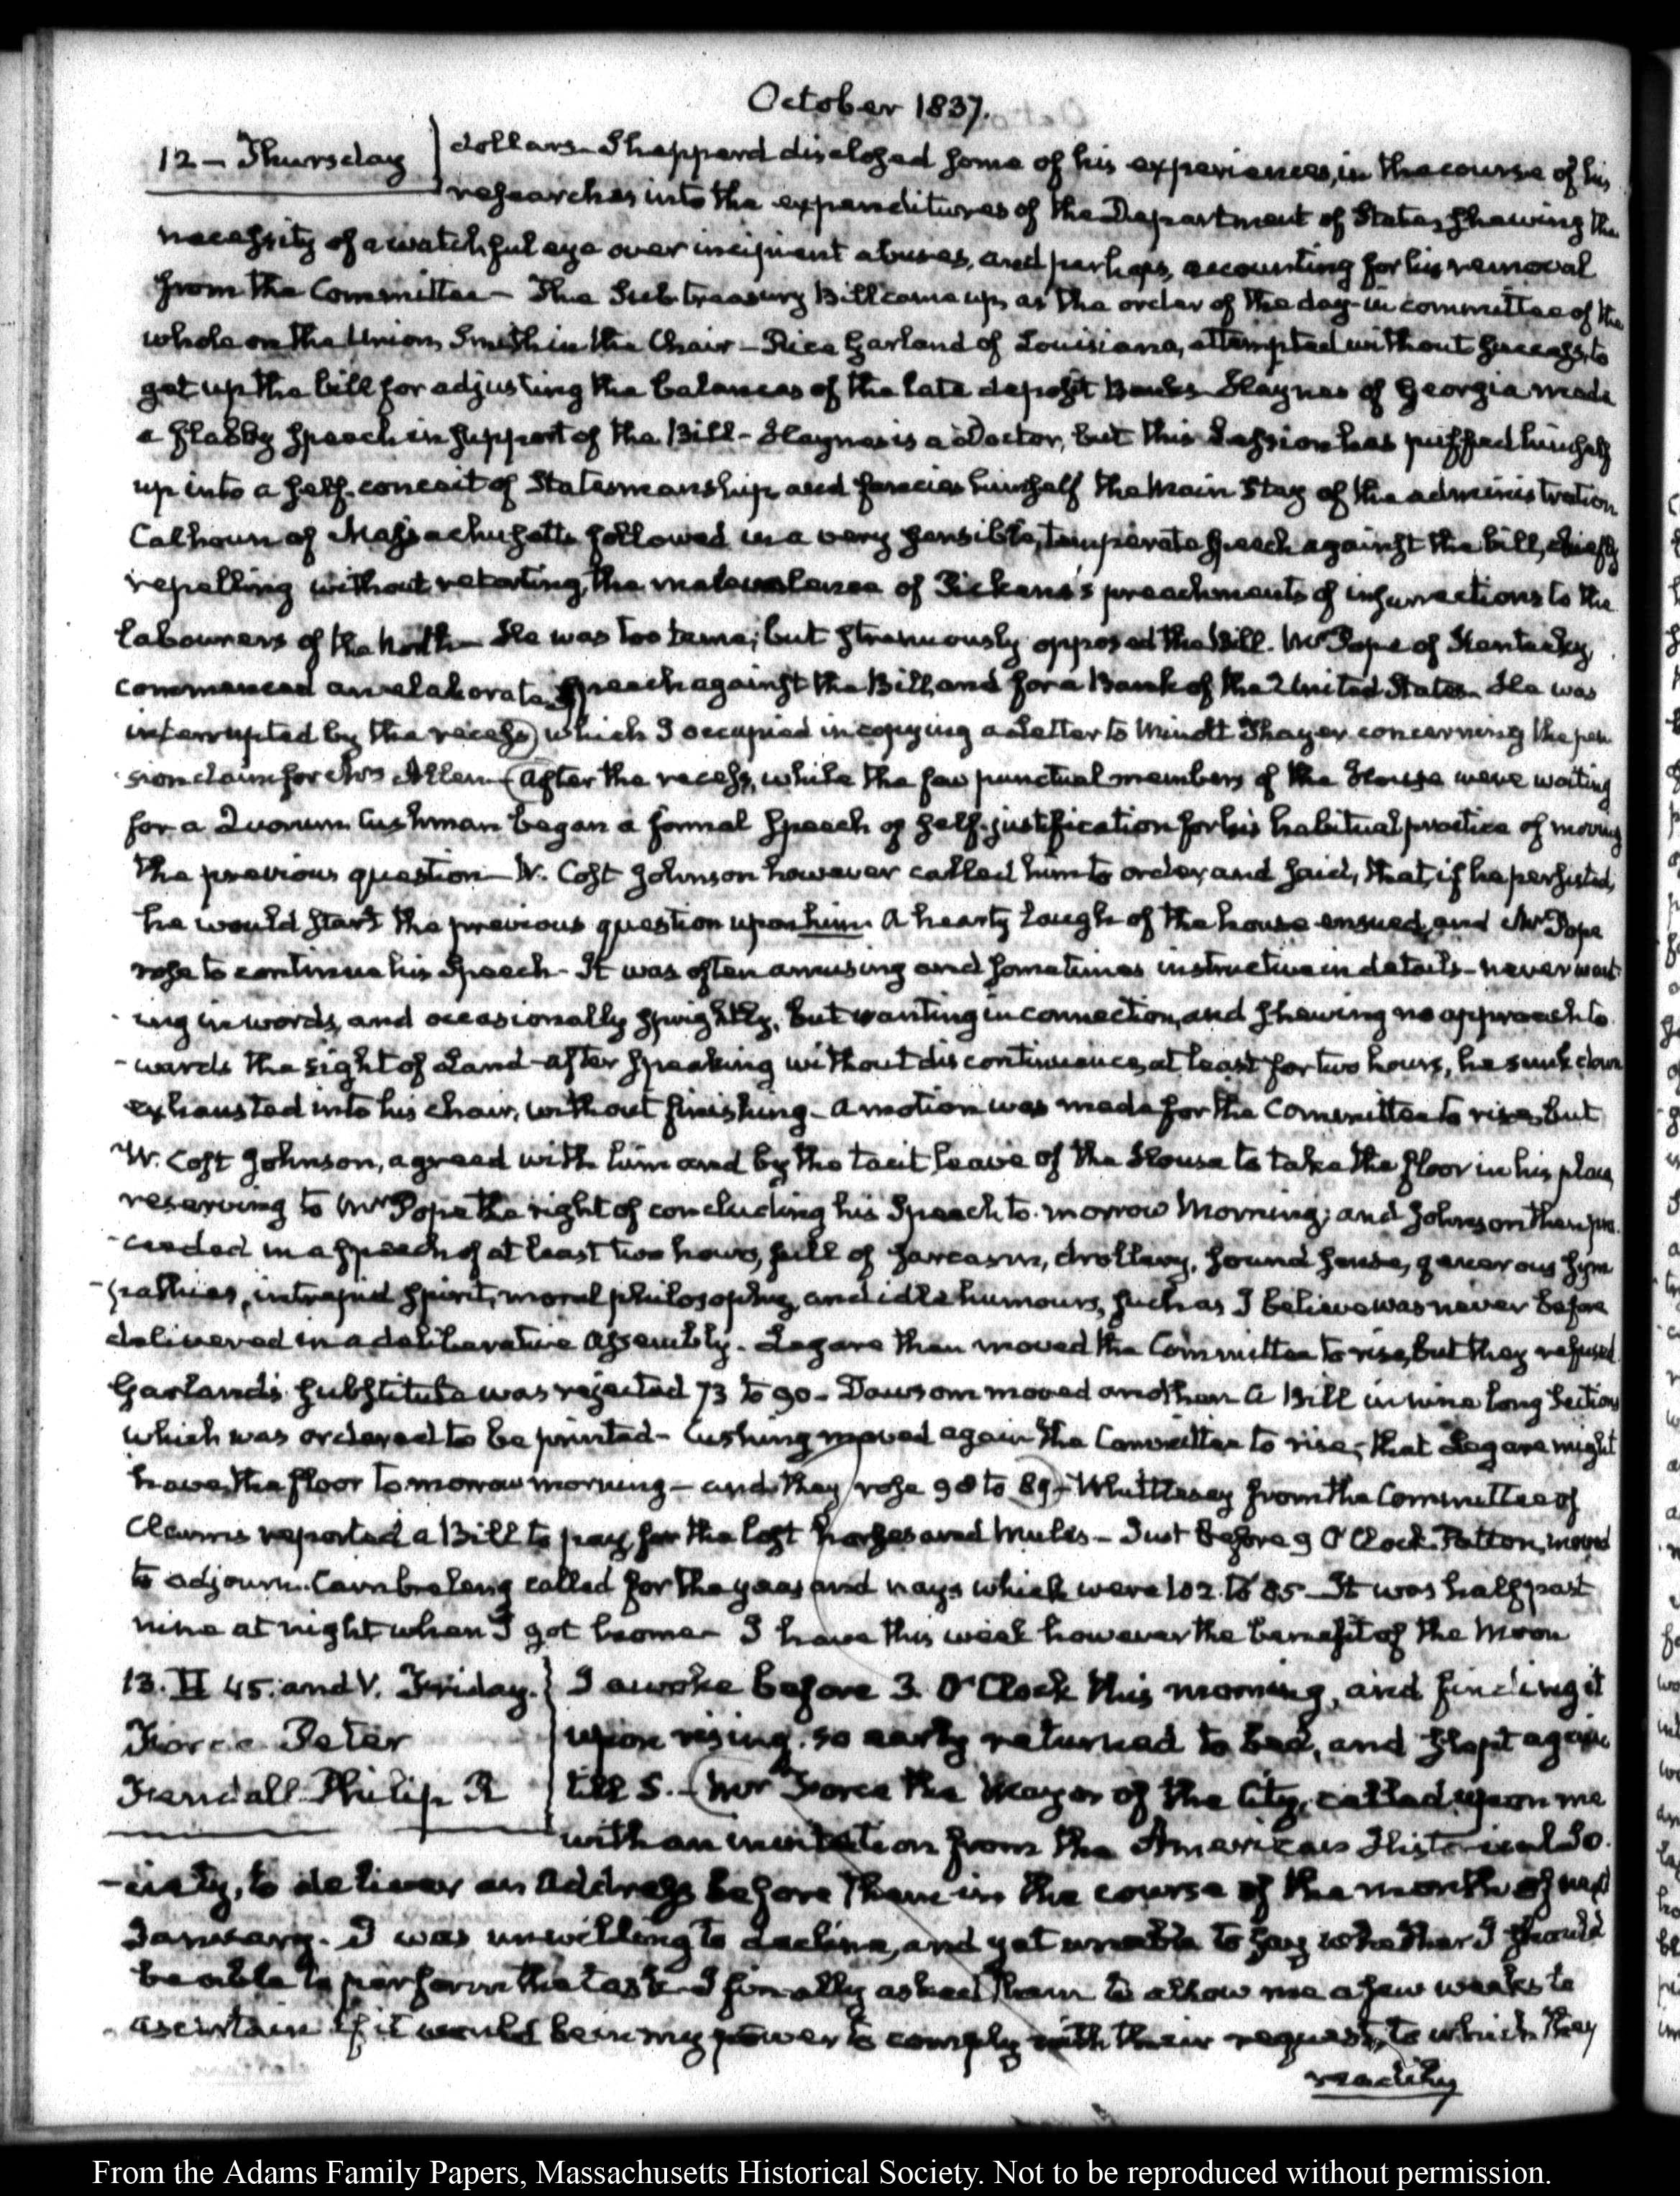 October 1837.
12 – Thursday
dollars– Shepperd disclosed some of his experiences, in the course of his
researches into the expenditures of the Department of State, shewing the
necessity of a watchful eye over incipient abuses, and perhaps, accounting for his removal
from the Committee– The Sub treasury Bill came up, as the order of the day– in committee of the
whole on the Union, Smith in the Chair– Rice Garland of Louisiana, attempted without success, to
get up the bill for adjusting the balances of the late deposit Banks– Haynes of Georgia made
a flabby speech in support of the Bill– Haynes is a Doctor, but this Session has puffed himself
up into a self-conceit of Statesmanship, and fancies himself the main Stay of the administration
Calhoun of Massachusetts followed in a very sensible, temperate speech against the bill, chiefly
repelling without retorting, the malevolence of Pickens's preachments of insurrections to the
labourers of the North– He was too tame; but strenuously opposed the Bill. Mr Pope of Kentucky,
commenced an elaborate Speech against the Bill, and for a Bank of the United States– He was
interrupted by the recess, which I occupied in copying a Letter to Minott Thayer concerning the pen
sion claim for Mrs Allen– After the recess, while the few punctual members of the House were waiting
for a Quorum, Cushman began a formal Speech of self-justification for his habitual practice of moving
the previous question– W. Cost Johnson however called him to order, and said, that, if he persisted,
he would start the previous question upon him. A hearty laugh of the house ensued, and Mr Pope
rose to continue his Speech– It was often amusing and sometimes instructive in details– never want
ing in words, and occasionally sprightly, but wanting in connection, and shewing no approach to
-wards the sight of Land– after speaking without discontinuance, at least for two hours, he sunk down
exhausted into his chair, without finishing– A motion was made for the Committee to rise, but
W. Cost Johnson, agreed with him and by the tacit leave of the House to take the floor in his place
reserving to Mr Pope the right of concluding his Speech to-morrow Morning; and Johnson then pro
-ceeded in a speech of at least two hours, full of sarcasm, drollery, sound sense, generous sym
-pathies, intrepid spirit, moral philosophy, and idle humours, such as I believe was never before
delivered in a deliberative Assembly– Legare then moved the Committee to rise, but they refused.
Garland's substitute was rejected 73 to 90– Dawson moved another– A Bill in nine long Sections
which was ordered to be printed– Cushing moved again the Committee to rise, that Legare might
have the floor to morrow morning– and they rose 98 to 89– Whittlesey from the Committee of
Claims reported a Bill to pay for the lost horses and Mules– Just before 9 O'Clock Patton, moved
to adjourn. Cambreleng called for the yeas and nays which were 102 to 85– It was half past
nine at night when I got home– I have this week however the benefit of the Moon
13. II 45. and V. Friday.
Force Peter
Fendall Philip R
I awoke before 3. O'Clock this morning, and finding it
upon rising, so early returned to bed, and slept again
till 5.– Mr Force the Mayor of the City, called upon me
with an invitation from the American Historical So.
-ciety, to deliver an Address before them in the course of the month of next
January. I was unwilling to decline, and yet unable to say whether I should
be able to perform the task– I finally asked them to allow me a few weeks to
ascertain if it would be in my power to comply with their request, to which they
readily
From the Adams Family Papers, Massachusetts Historical Society. Not to be reproduced without permission.